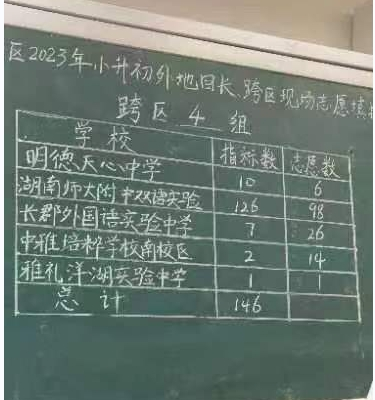 区2023年小升初外地回长、跨区现场志愿填报
跨区 4 组
学校 指标数 志愿数
明德天心中学 10 6
湖南师大附中双语实验 126 98
长郡外国语实验中学 7 26
中雅培粹学校南校区 2 14
雅礼洋湖实验中学 1 1
总计 146